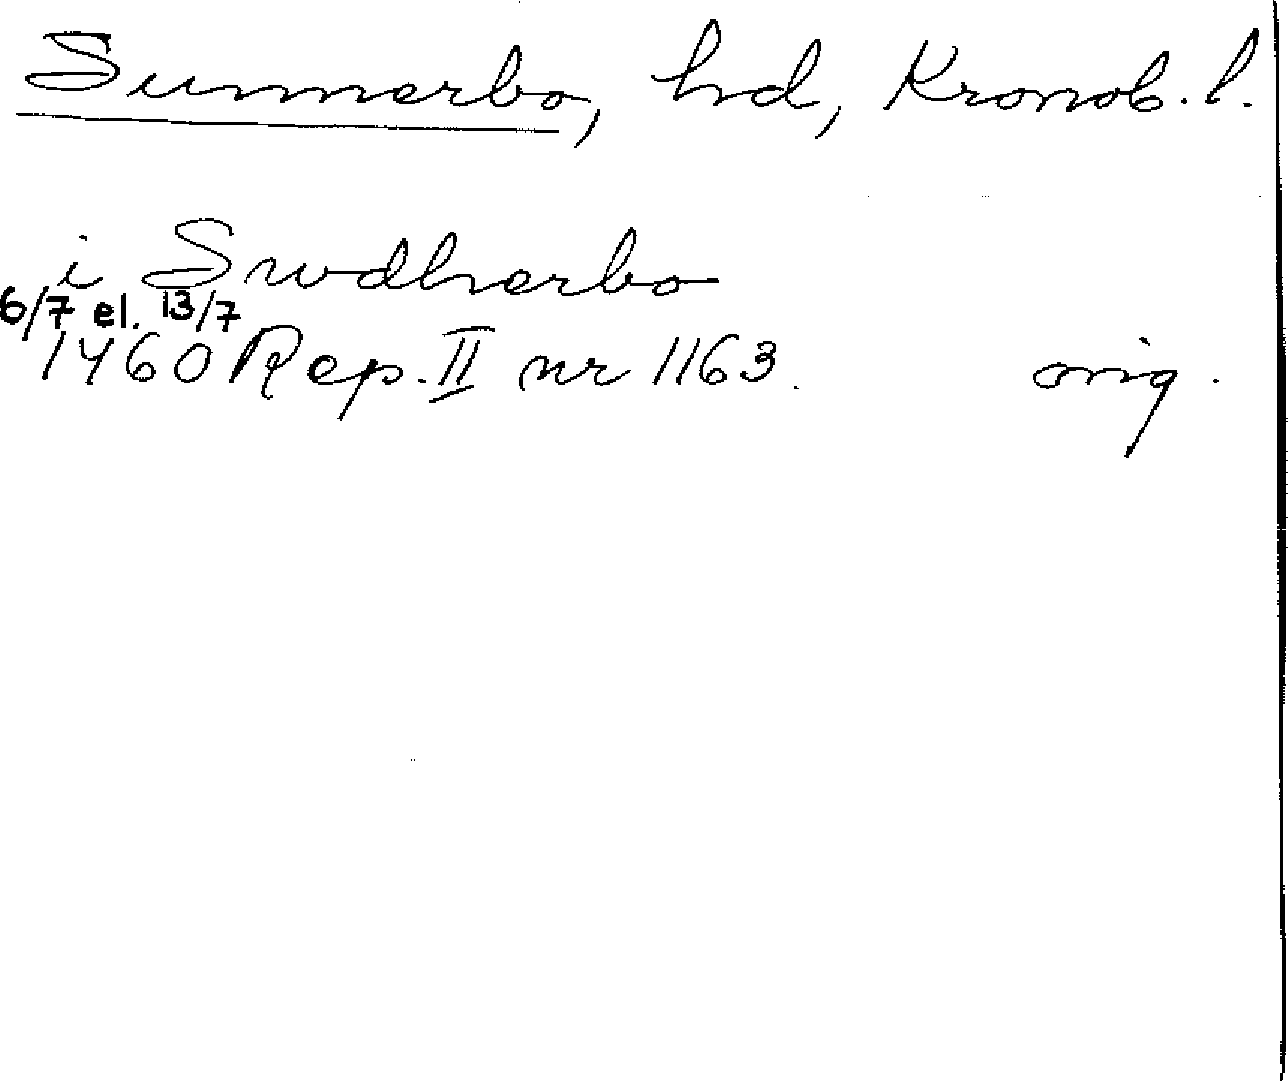 Sunnerbo, hd, Kronob. l.
i Swdherbo
6/7 el. 13/7
1460 Rep. II nr 1163. orig.